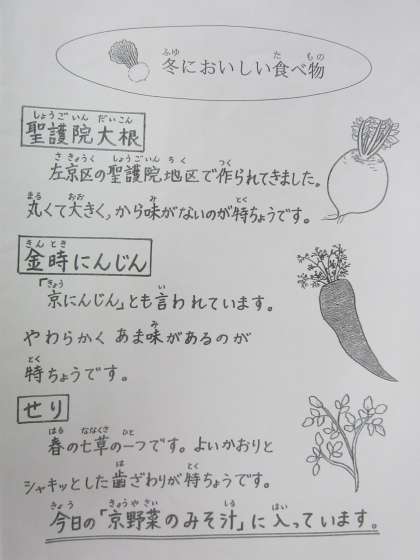 冬においしい食べ物
聖護院大根
左京区の聖護院地区で作られてきました。
丸くて大きく、から味がないのが特ちょうです。
金時にんじん
「京にんじん」とも言われています。
やわらかく あま味があるのが
特ちょうです。
せり
春の七草の一つです。よいかおりと
シャキッとした歯ざわりが特ちょうです。
今日の「京野菜のみそ汁」に入っています。